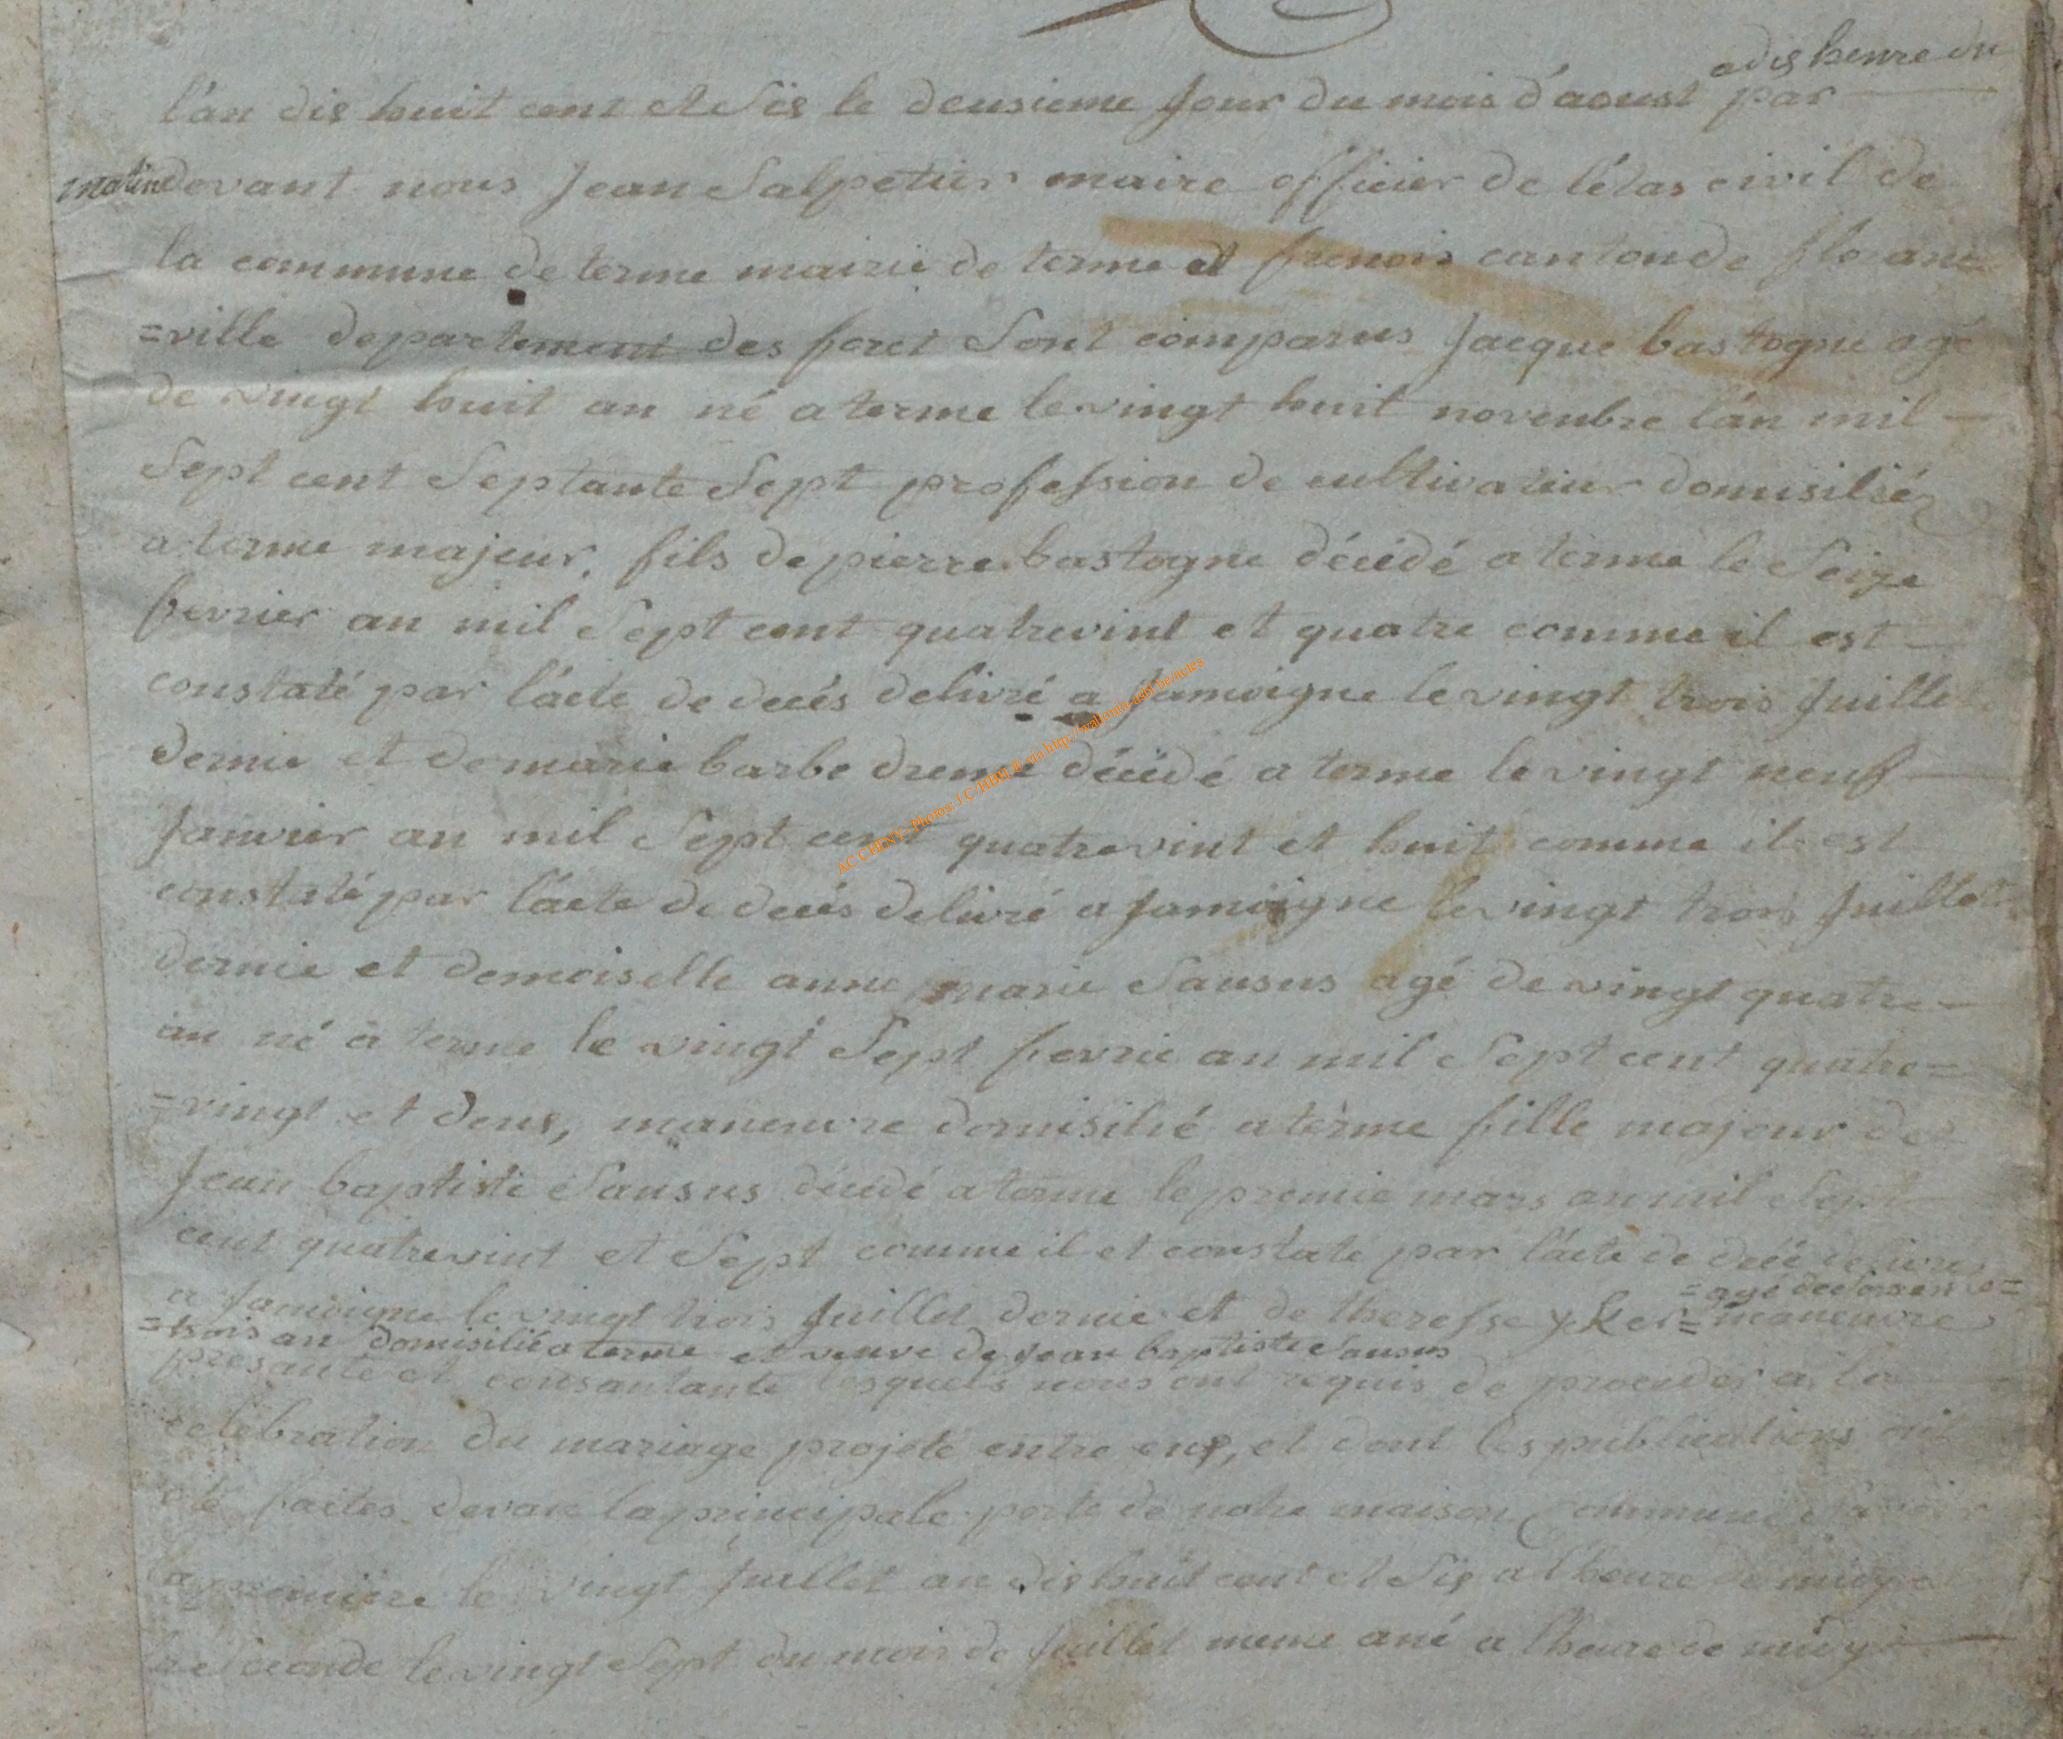 adis heure du
l'án dis huit cent et Sis le deusieme Jour du mois d'aoust par
matin devant nous Jean Salpetier maire officier de l'étas civil de
la commune de terme mairie de terme et frenois canton de floran
=ville departement des foret Sont comparus Jacque bastogne agé
de vingt huit an né a terme le vingt huit novenbre l'án mil
Sept cent Septante Sept profession de cultivateur domisilié
a terme majeur, fils de pierre bastogne décédé a terme le Seize
fevrier an mil Sept cent quatrevint et quatre comme il est
constaté par l'acte de decés delivré a Jamoigne le vingt trois Juillet
dernie et de marie barbe décédé a terme le vingt neuf
Janvier an mil Sept cent quatrevint et huit comme il est
constaté par l'acte de decés delivré a Jamoigne le vingt trois Juillet
dernie et demoiselle anne marie Sausus agé de vingt quatre
an né a terme le vingt Sept fevrie an mil Sept cent quatre=
=vingt et deus, maneuvre domisilié a terme fille majeur de
Jean baptiste Sausus décédé a terme le premie mars an mil Sept
cent quatrevint et Sept comme il et constaté par l'acte de
=agé de soisente=
a Jamoigne le vingt trois Juillet dernie et de theresse =maneuvre
=trois an domisilié a terme et veuve de Jean baptiste Sausus
presante et consantante lesquels nous ont requis de proceder a la
celebration du mariage projeté entre eus, et dont les publications ont
été faites devant la principale porte de notre maison commune
la premiere le vingt Juillet an dis huit cent et Sis a l'heure de midy et
la Seconde le vingt Sept du mois de Juillet meme ané a l'heure de midy
AC CHINY - Photos J C